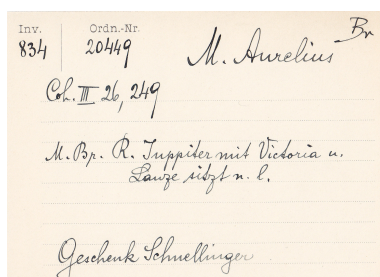 Inv. Ordn.-Nr. Br
834 20449 M. Aurelius
Coh. III 26, 249
M. Br. R. Juppiter mit Victoria u.
Lanze sitzt n. l.
Geschenk Schnellinger